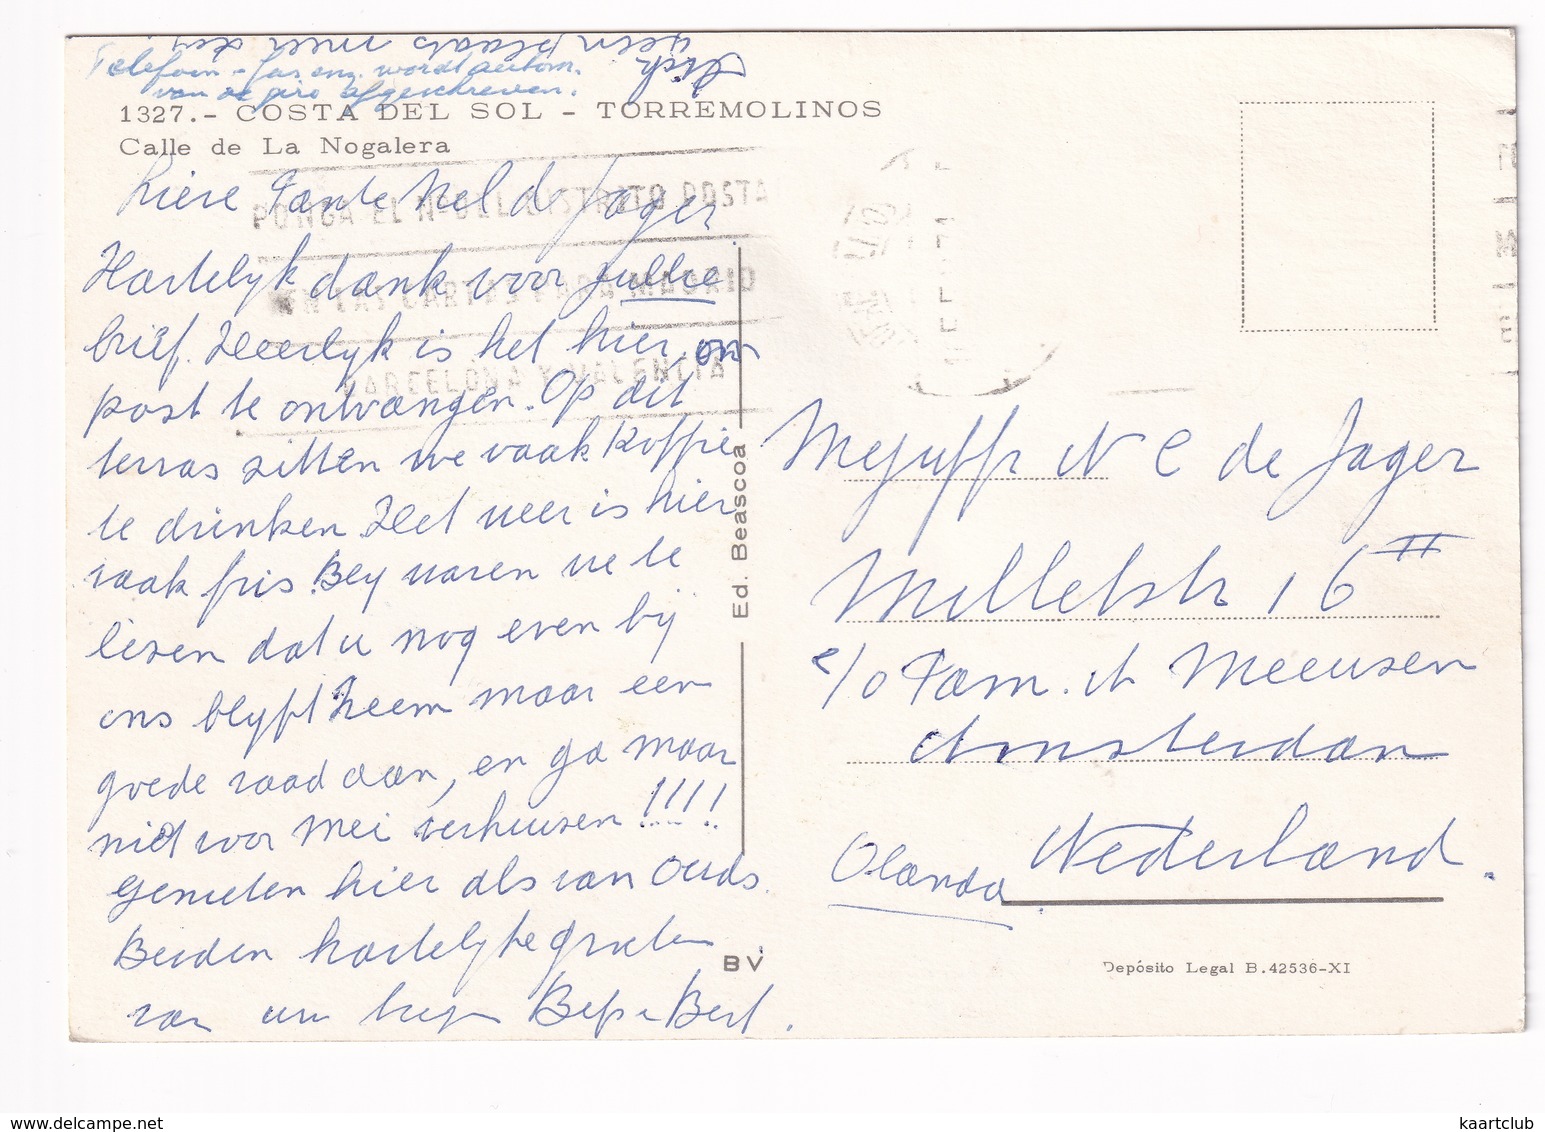 geen plaats meer
Telefoon - gas enz. wordt autom.
van de giro afgeschreven.
1327.- COSTA DEL SOL - TORREMOLINOS
Calle de La Nogalera
PONGA EL Nº DEL DISTRITO POSTAL
EN LAS CARTAS PARA MADRID
BARCELONA Y VALENCIA
Lieve Tante Nel de Jager
Hartelijk dank voor jullie
brief. Heerlijk is het hier om
post te ontvangen. Op dit
terras zitten we vaak koffie
te drinken. Het weer is hier
vaak fris. Bly waren we te
lezen dat u nog even bij
ons blyft Neem maar een
goede raad aan, en ga maar
niet voor Mei verhuizen !!!!
Genieten hier als van Ouds.
Beiden hartelyke groeten
van uw Bep en Bert.
Ed. Beascoa
BV
Mejuffr N C de Jager
Milletstr 16 II
c/o Fam. A Meeusen
Amsterdam
Olanda Nederland.
Depósito Legal B.42536-XI
www.delcampe.net
kaartclub